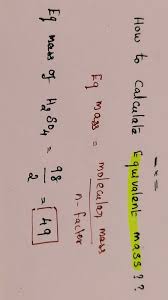 How to Calculate Equivalent mass ??
Eq mass = molecular mass
n-factor
Eq mass of H₂SO₄ = 98
2
= 49